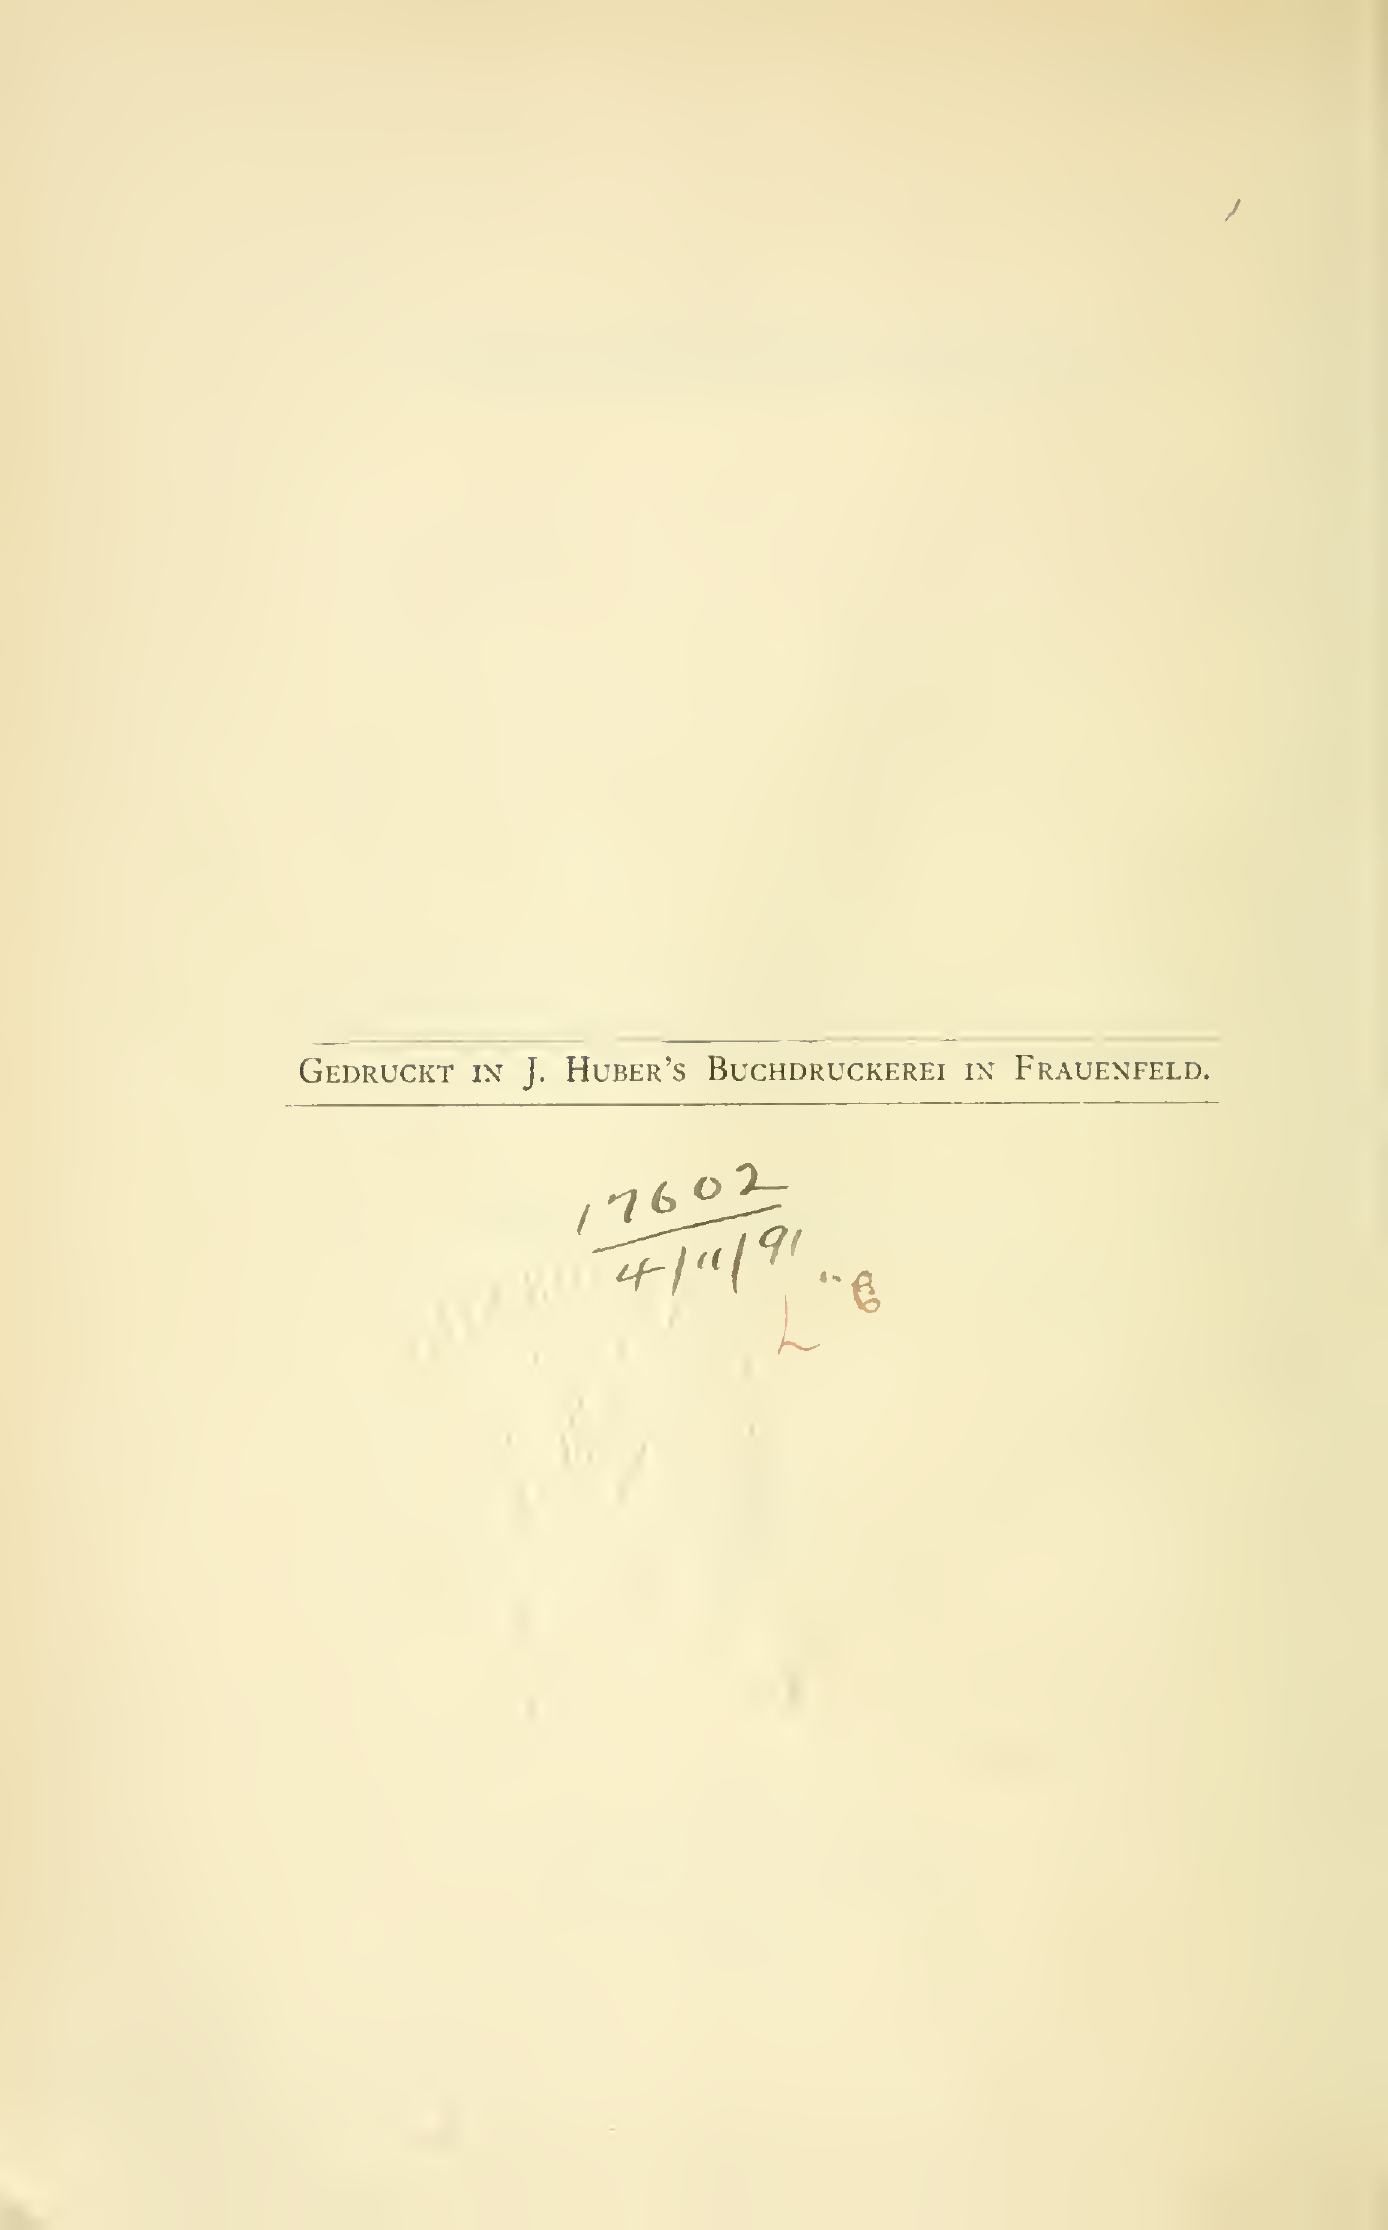 GEDRUCKT IN J. HUBER'S BUCHDRUCKEREI IN FRAUENFELD.
17602
4/11/91
L